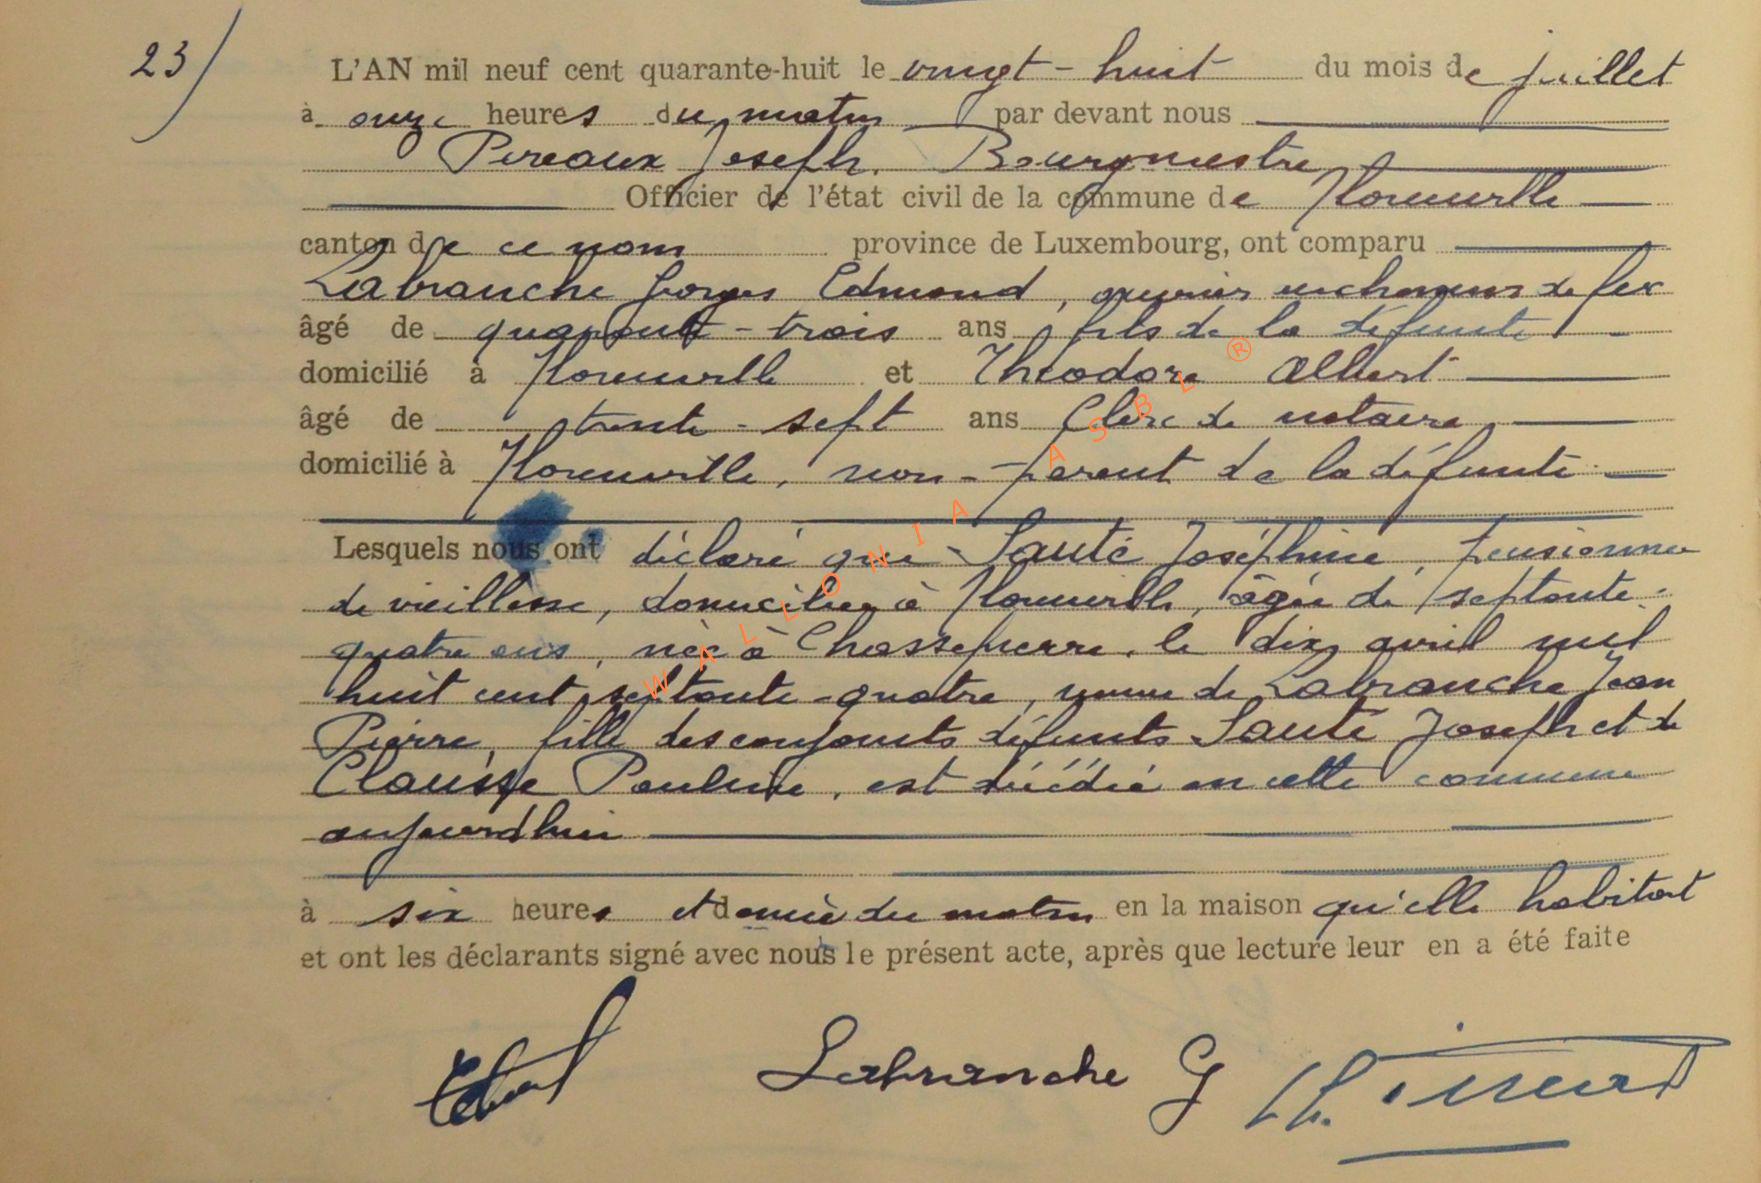 23)
L'AN mil neuf cent quarante-huit le vingt-huit du mois de juillet
à onze heures du matin par devant nous
Pireaux Joseph, Bourgmestre
Officier de l'état civil de la commune de Florenville
canton de ce nom province de Luxembourg, ont comparu
Labranche Georges Edmond, ouvrier aux chemins de fer
âgé de quarante-trois ans, fils de la défunte
domicilié à Florenville et Théodore Albert
âgé de trente-sept ans Clerc de notaire
domicilié à Florenville, non-parent de la défunte
Lesquels nous ont déclaré que Sauté Joséphine, pensionnée
de vieillesse, domiciliée à Florenville, âgée de septante-
quatre ans, née à Chassepierre, le dix avril mil
huit cent septante-quatre, veuve de Labranche Jean
Pierre, fille des conjoints défunts Sauté Joseph et de
Clausse Pauline, est décédée en cette commune
aujourd'hui
à six heures et demie du matin en la maison qu'elle habitait
et ont les déclarants signé avec nous le présent acte, après que lecture leur en a été faite
Labranche G
WALLONIA ASBL ®